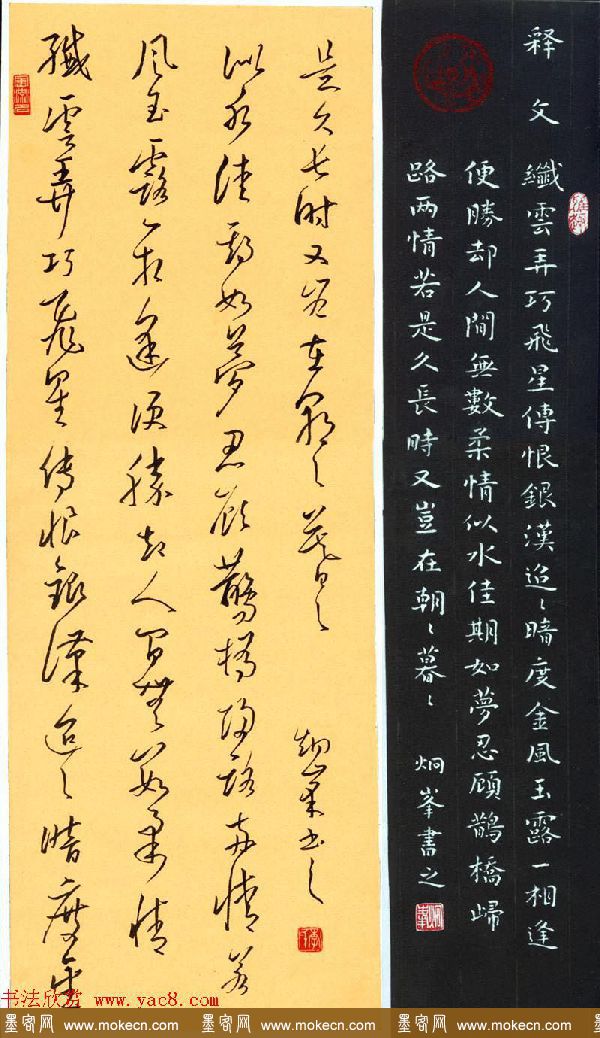 释文 纖雲弄巧飛星傳恨銀漢迢〻暗度金風玉露一相逢
便勝却人間無數柔情似水佳期如夢忍顧鵲橋歸
路两情若是久長時又豈在朝〻暮〻 炯峯書之
纖雲弄巧飛星傳恨銀漢迢〻暗度金
風玉露一相逢便勝却人間無數柔情
似水佳期如夢忍顧鵲橋歸路两情若
是久長時又豈在朝〻暮〻 炯峯書之
书法欣赏 www.yac8.com
墨客网 www.mokecn.com 墨客网 www.mokecn.com 墨客网 www.mokecn.com